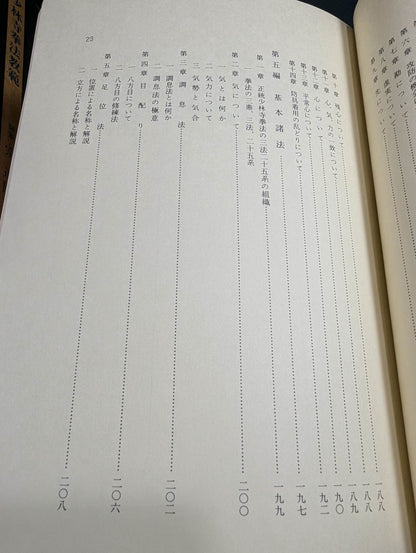 教範
第六章 攻防
第七章 動について
第八章 虚実について
第九章
第十章 残心について……一八八
一八八
第十一章 心、気、力の一致について……一八九
第十二章 心について……一九〇
第十三章 平常心について……一九二
第十四章 防具着用の乱どりについて……一九七
第五編 基本諸法
第一章 正統少林寺拳法の三法二十五系の組織……一九九
一 拳法の三鼎、三法、二十五系
第二章 気について……二〇〇
一 気とは何か
二 気力について
三 気勢と気合
第三章 調息法……二〇二
一 調息法とは何か
二 調息法の極意
第四章 目配り……二〇六
一 八方目について
二 八方目の修練法
第五章 足位法……二〇八
一 位置による名称と解説
二 立方による名称と解説
23